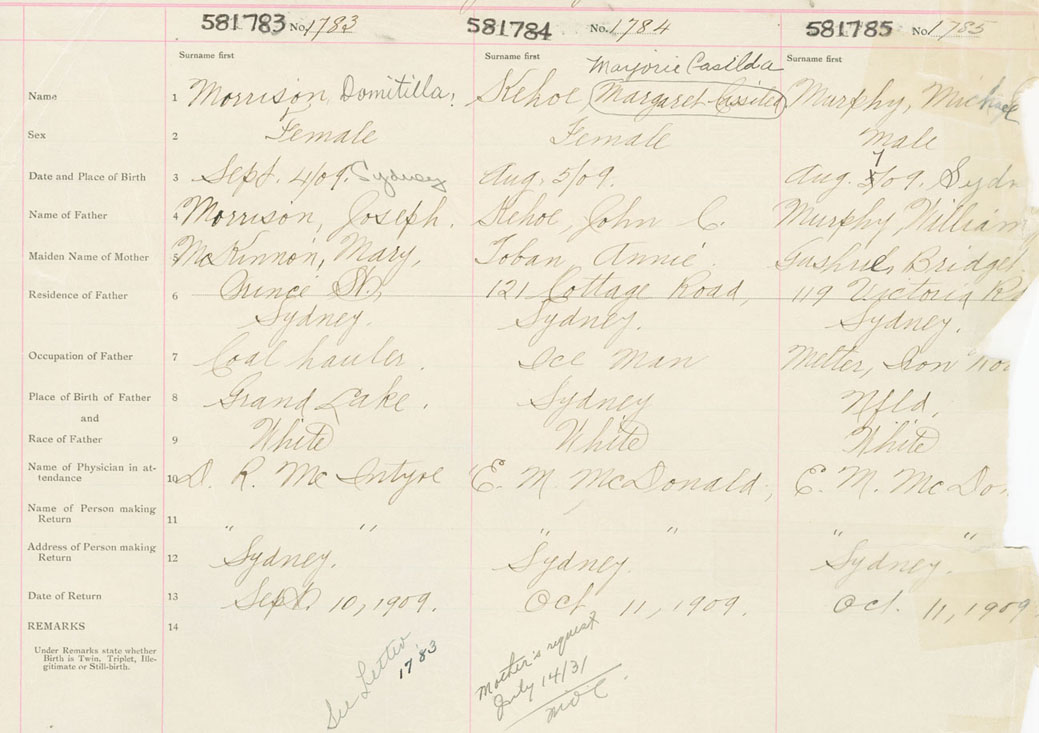 581783 No. 1783 581784 No. 1784 581785 No. 1785
Surname first Surname first Surname first
Marjorie Casilda
Name 1 Morrison, Domitilla. Kehoe Margaret Murphy, Michael
Sex 2 Female Female Male
7
Date and Place of Birth 3 Sept. 4/09. Sydney Aug. 5/09. Aug. /09. Sydn
Name of Father 4 Morrison, Joseph. Kehoe, John C. Murphy, William
Maiden Name of Mother 5 McKinnon, Mary, Toban, Annie. Bridget.
Residence of Father 6 Prince St., 121 Cottage Road, 119 Victoria R
Sydney. Sydney. Sydney.
Occupation of Father 7 Coal hauler. Ice Man Melter, Iron
Place of Birth of Father 8 Grand Lake. Sydney Nfld.
and
Race of Father 9 White White White
Name of Physician in at-
tendance 10 D. R. McIntyre E. M. McDonald, E. M. McDo
Name of Person making
Return 11 " " " " " "
Address of Person making
Return 12 Sydney. Sydney. Sydney.
Date of Return 13 Sept. 10, 1909. Oct. 11, 1909. Oct. 11, 1909
REMARKS 14
Under Remarks state whether
Birth is Twin, Triplet, Ille-
gitimate or Still-birth.
See Letter
1783
Mother's request
July 14/31